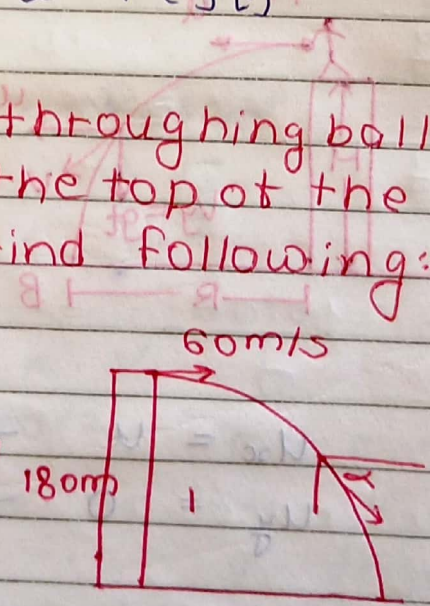 throughing ball
he top of the
ind following:
60m/s
180m